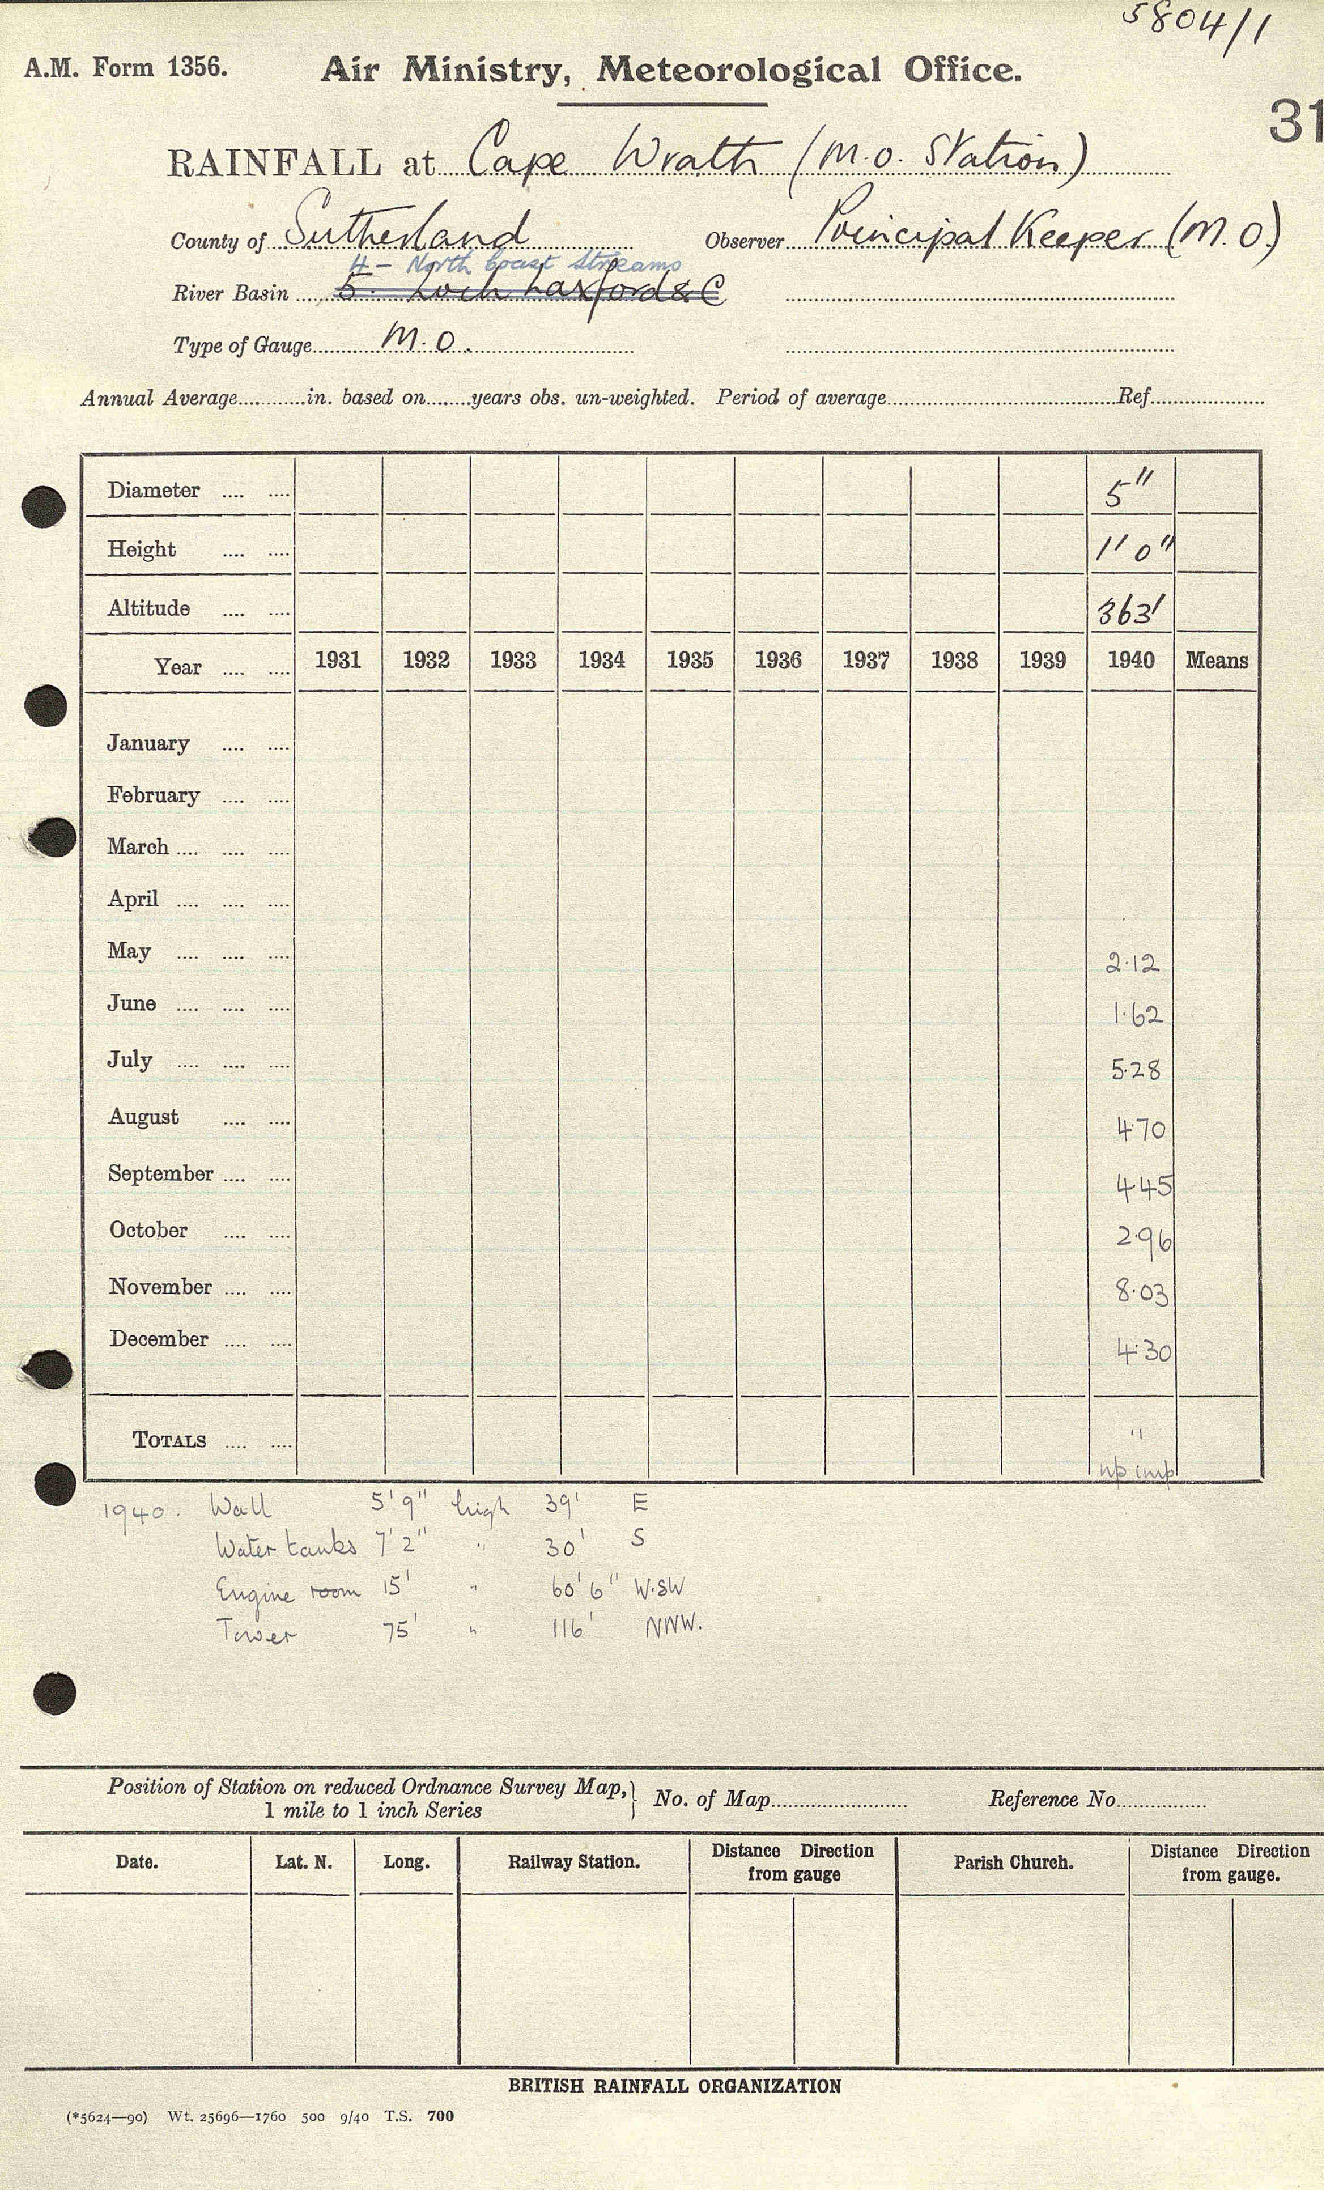 5804/1
A.M. Form 1356. Air Ministry, Meteorological Office.
31
RAINFALL at Cape Wrath (M.O. Station)
County of Sutherland Observer Principal Keeper (M.O.)
4 - North Coast Streams
River Basin 5. Loch Laxford & C
Type of Gauge M.O.
Annual Average..........in. based on.......years obs. un-weighted. Period of average.......... Ref..........
Diameter .... .... 5"
Height .... .... 1' 0"
Altitude .... .... 363'
Year .... .... 1931 1932 1933 1934 1935 1936 1937 1938 1939 1940 Means
January .... ....
February .... ....
March .... .... ....
April .... .... ....
May .... .... .... 2·12
June .... .... .... 1·62
July .... .... .... 5·28
August .... .... 4·70
September .... .... 4·45
October .... .... 2·96
November .... .... 8·03
December .... .... 4·30
TOTALS .... .... "
np imp
1940. Wall 5' 9" high 39' E
Water tanks 7' 2" " 30' S
Engine room 15' " 60' 6" W·SW
Tower 75' " 116' NNW.
Position of Station on reduced Ordnance Survey Map,
1 mile to 1 inch Series
No. of Map.......... Reference No..........
Date. Lat. N. Long. Railway Station. Distance Direction from gauge Parish Church. Distance Direction from gauge.
BRITISH RAINFALL ORGANIZATION
(*5624—90) Wt. 25696—1760 500 9/40 T.S. 700